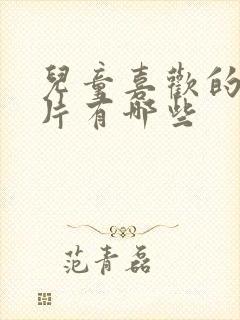 兒童喜歡的
片有哪些
范青磊